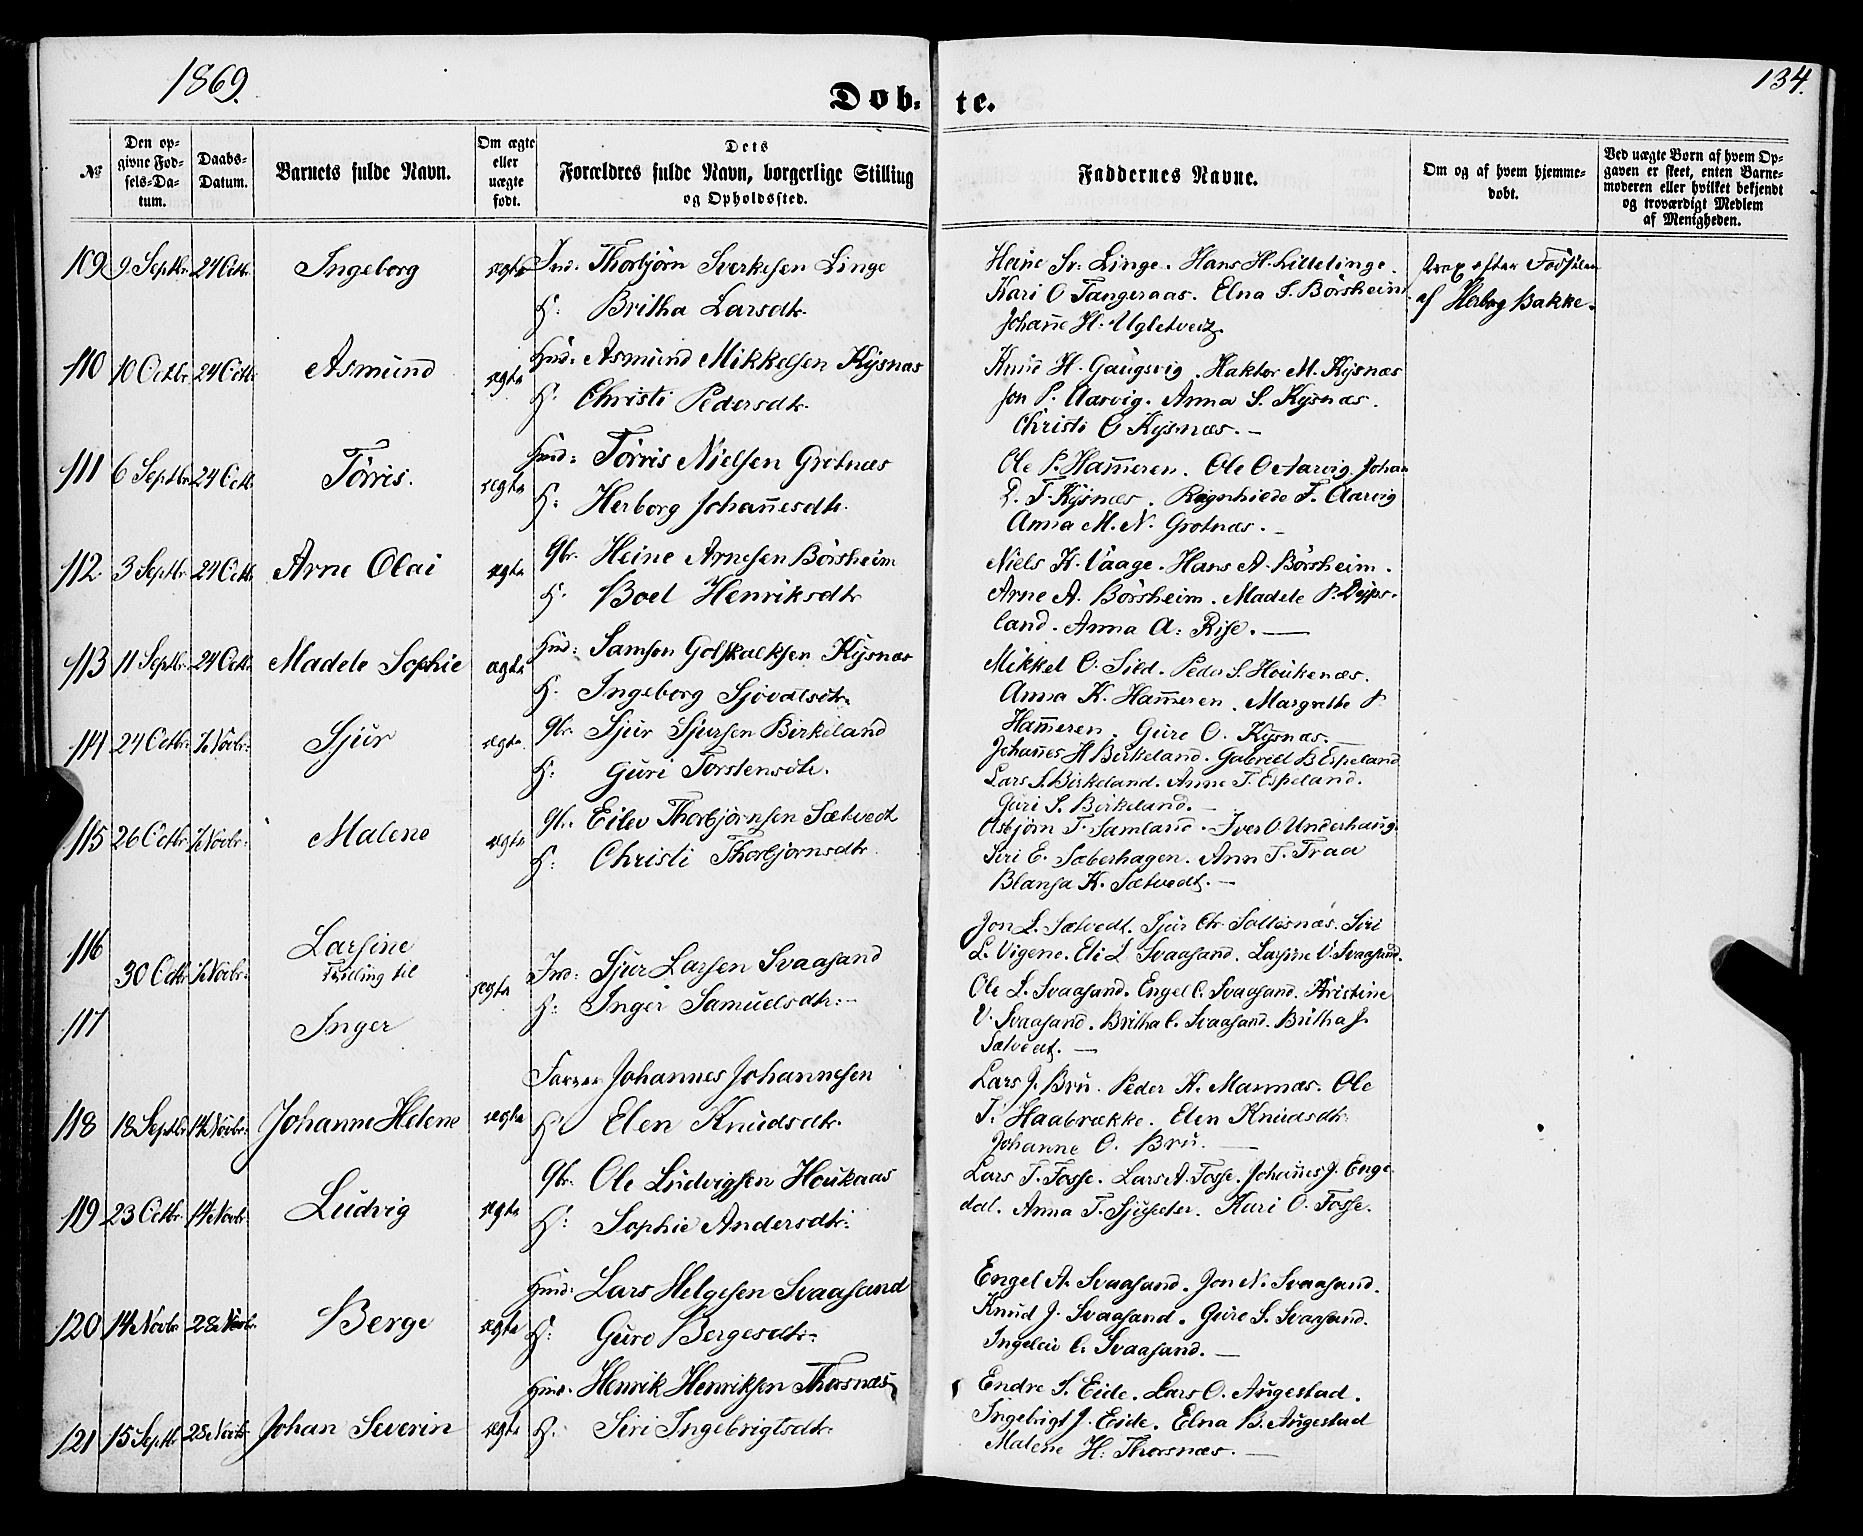 1869.
134.
Døb- te.
№
Den opgivne Fødsels-Datum.
Daabs-Datum.
Barnets fulde Navn.
Om ægte eller uægte født.
Dets Forældres fulde Navn, borgerlige Stilling og Opholdssted.
Faddernes Navne.
Om og af hvem hjemmedøbt.
Ved uægte Børn af hvem Opgaven er skeet, enten Barnemoderen eller hvilket bekjendt og troværdigt Medlem af Menigheden.
109 9 Septbr. 24 Octb. Ingeborg ægte Ind. Thorbjørn Sverkesen Linge
H: Britha Larsdtr.
Heine Sv. Linge. Hans H. Lillelinge.
Kari O Tangeraas. Elna S. Børsheim
Johan̄e H. Ugletveit.
strax efter Fødselen
af Herborg Bakke.
110 10 Octbr. 24 Octb. Asmund ægte Hmd. Asmund Mikkelsen Kysnæs
H: Christi Pedersdtr.
Knud H. Gaugsvig. Haktor M. Kysnæs
Jon P. Aarvig. Anna S. Kysnæs.
Christi O Kysnæs. —
111 6 Septbr. 24 Octb. Tørris. ægte Hmd: Tørris Nielsen Grotnæs
H: Herborg Johan̄esdtr.
Ole P. Ham̄eren. Ole O Aarvig. Johan
T. Kysnæs. Ragnhilde T. Aarvig
Anna M. N. Grotnæs. —
112 3 Septbr. 24 Octb. Arne Olai ægte Gbr. Heine Arnesen Børsheim
H. Boel Henriksdtr
Niels K. Vaage. Hans A. Børsheim.
Arne A. Børsheim. Madele P.
land. Anna A. Rise. —
113 11 Septbr. 24 Octb. Madele Sophie ægte Hmd: Samson Golskalksen Kysnæs
H: Ingeborg Sjovatsdtr.
Mikkel O. Sild. Peder S. Houkenæs.
Anna K. Ham̄eren. Margrethe P
Ham̄eren. Gure O. Kysnæs. —
114 24 Octbr. 7 Novbr. Sjur ægte Gbr. Sjur Sjursen Birkeland
H: Guri Torstensdtr.
Johan̄es H Birkeland. Gabriel B Espeland
Lars S. Birkeland. Anne T. Espeland.
Guri S. Birkeland. —
115 26 Octbr. 7 Novbr. Malene ægte Gbr. Eilev Thorbjørnsen Sætvedt
H: Christi Thorbjørnsdtr.
Asbjørn T. Samland. Iver O. Underhaug.
Siri E. Sæberhagen. Ann T. Traa
Blansa K. Sætvedt. —
116 30 Octbr. 7 Novbr. Larsine
Tvilling til
117 Inger
ægte Ind: Sjur Larsen Svaasand
H: Inger Samuelsdtr. —
Jon L. Sætvedt. Sjur Chr. Soltesnæs. Siri
L. Vigene. Eli L Svaasand. Larsine V. Svaasand.
Ole L. Svaasand. Engel C. Svaasand. Kristine
V. Svaasand. Britha C. Svaasand. Britha J.
Sætvedt. —
118 18 Septbr. 14 Novbr. Johanne Helene ægte Johannes Johannesen
H. Elen Knudsdtr.
Lars J. Bru. Peder K. Marnæs. Ole
T. Haabrække. Elen Knudsdtr.
Johanne O. Bru. —
119 23 Octbr. 14 Novbr. Ludvig ægte Gbr. Ole Ludvigsen Houkaas
H: Sophie Andersdtr.
Lars T. Fosse. Lars A. Fosse. Johan̄es J. Enge
dal. Anna T. Sjusæter. Kari O. Fosse.
120 14 Novbr. 28 Novbr. Berge ægte Hmd: Lars Helgesen Svaasand
H: Guro Bergesdtr.
Engel A. Svaasand. Jon N. Svaasand.
Knud J. Svaasand. Gure S. Svaasand.
Ingeleiv C. Svaasand. —
121 15 Septbr 28 Novbr. Johan Severin ægte Hmd. Henrik Henriksen Thorsnæs
H. Siri Ingebrigtsdtr.
Endre S. Eide. Lars O. Augestad.
Ingebrigt J. Eide. Elna B. Augestad
Malene H. Thorsnæs. —